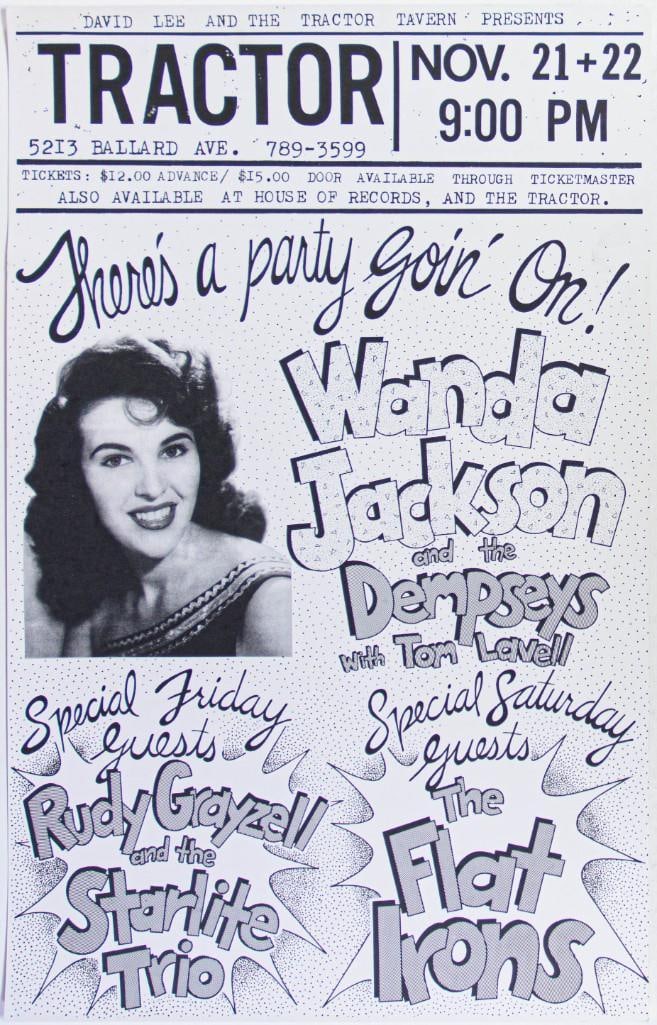 DAVID LEE AND THE TRACTOR TAVERN PRESENTS
TRACTOR
NOV. 21+22
9:00 PM
5213 BALLARD AVE. 789-3599
TICKETS: $12.00 ADVANCE/ $15.00 DOOR AVAILABLE THROUGH TICKETMASTER
ALSO AVAILABLE AT HOUSE OF RECORDS, AND THE TRACTOR.
There's a party Goin' On!
Wanda
Jackson
and the
Dempseys
with Tom Lavell
Special Friday
Guests
Rudy Grayzell
and the
Starlite
Trio
Special Saturday
Guests
The
Flat
Irons